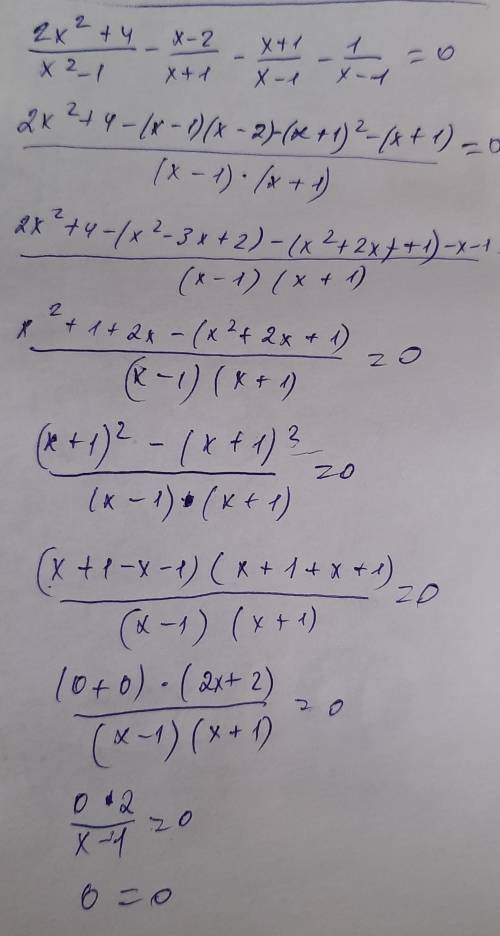 (2x² + 4)/(x² - 1) - (x - 2)/(x + 1) - (x + 1)/(x - 1) - 1/(x - 1) = 0
(2x² + 4 - (x - 1)(x - 2) - (x + 1)² - (x + 1))/((x - 1) · (x + 1)) = 0
(2x² + 4 - (x² - 3x + 2) - (x² + 2x + 1) - x - 1)/((x - 1) (x + 1))
(x² + 1 + 2x - (x² + 2x + 1))/((x - 1) (x + 1)) = 0
((x + 1)² - (x + 1)²)/((x - 1) · (x + 1)) = 0
((x + 1 - x - 1) (x + 1 + x + 1))/((x - 1) (x + 1)) = 0
((0 + 0) · (2x + 2))/((x - 1) (x + 1)) = 0
(0 · 2)/(x - 1) = 0
0 = 0